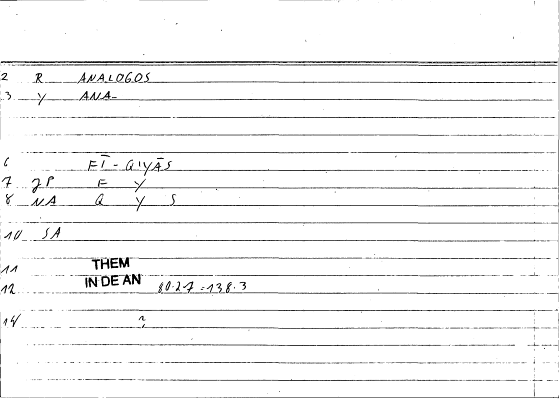 2 R ANALOGOS
3 Y ANA-
6 FĪ-QIYĀS
7 JP F Y
8 NA Q Y S
10 SA
11 THEM
12 IN DE AN 80.27=138.3
14